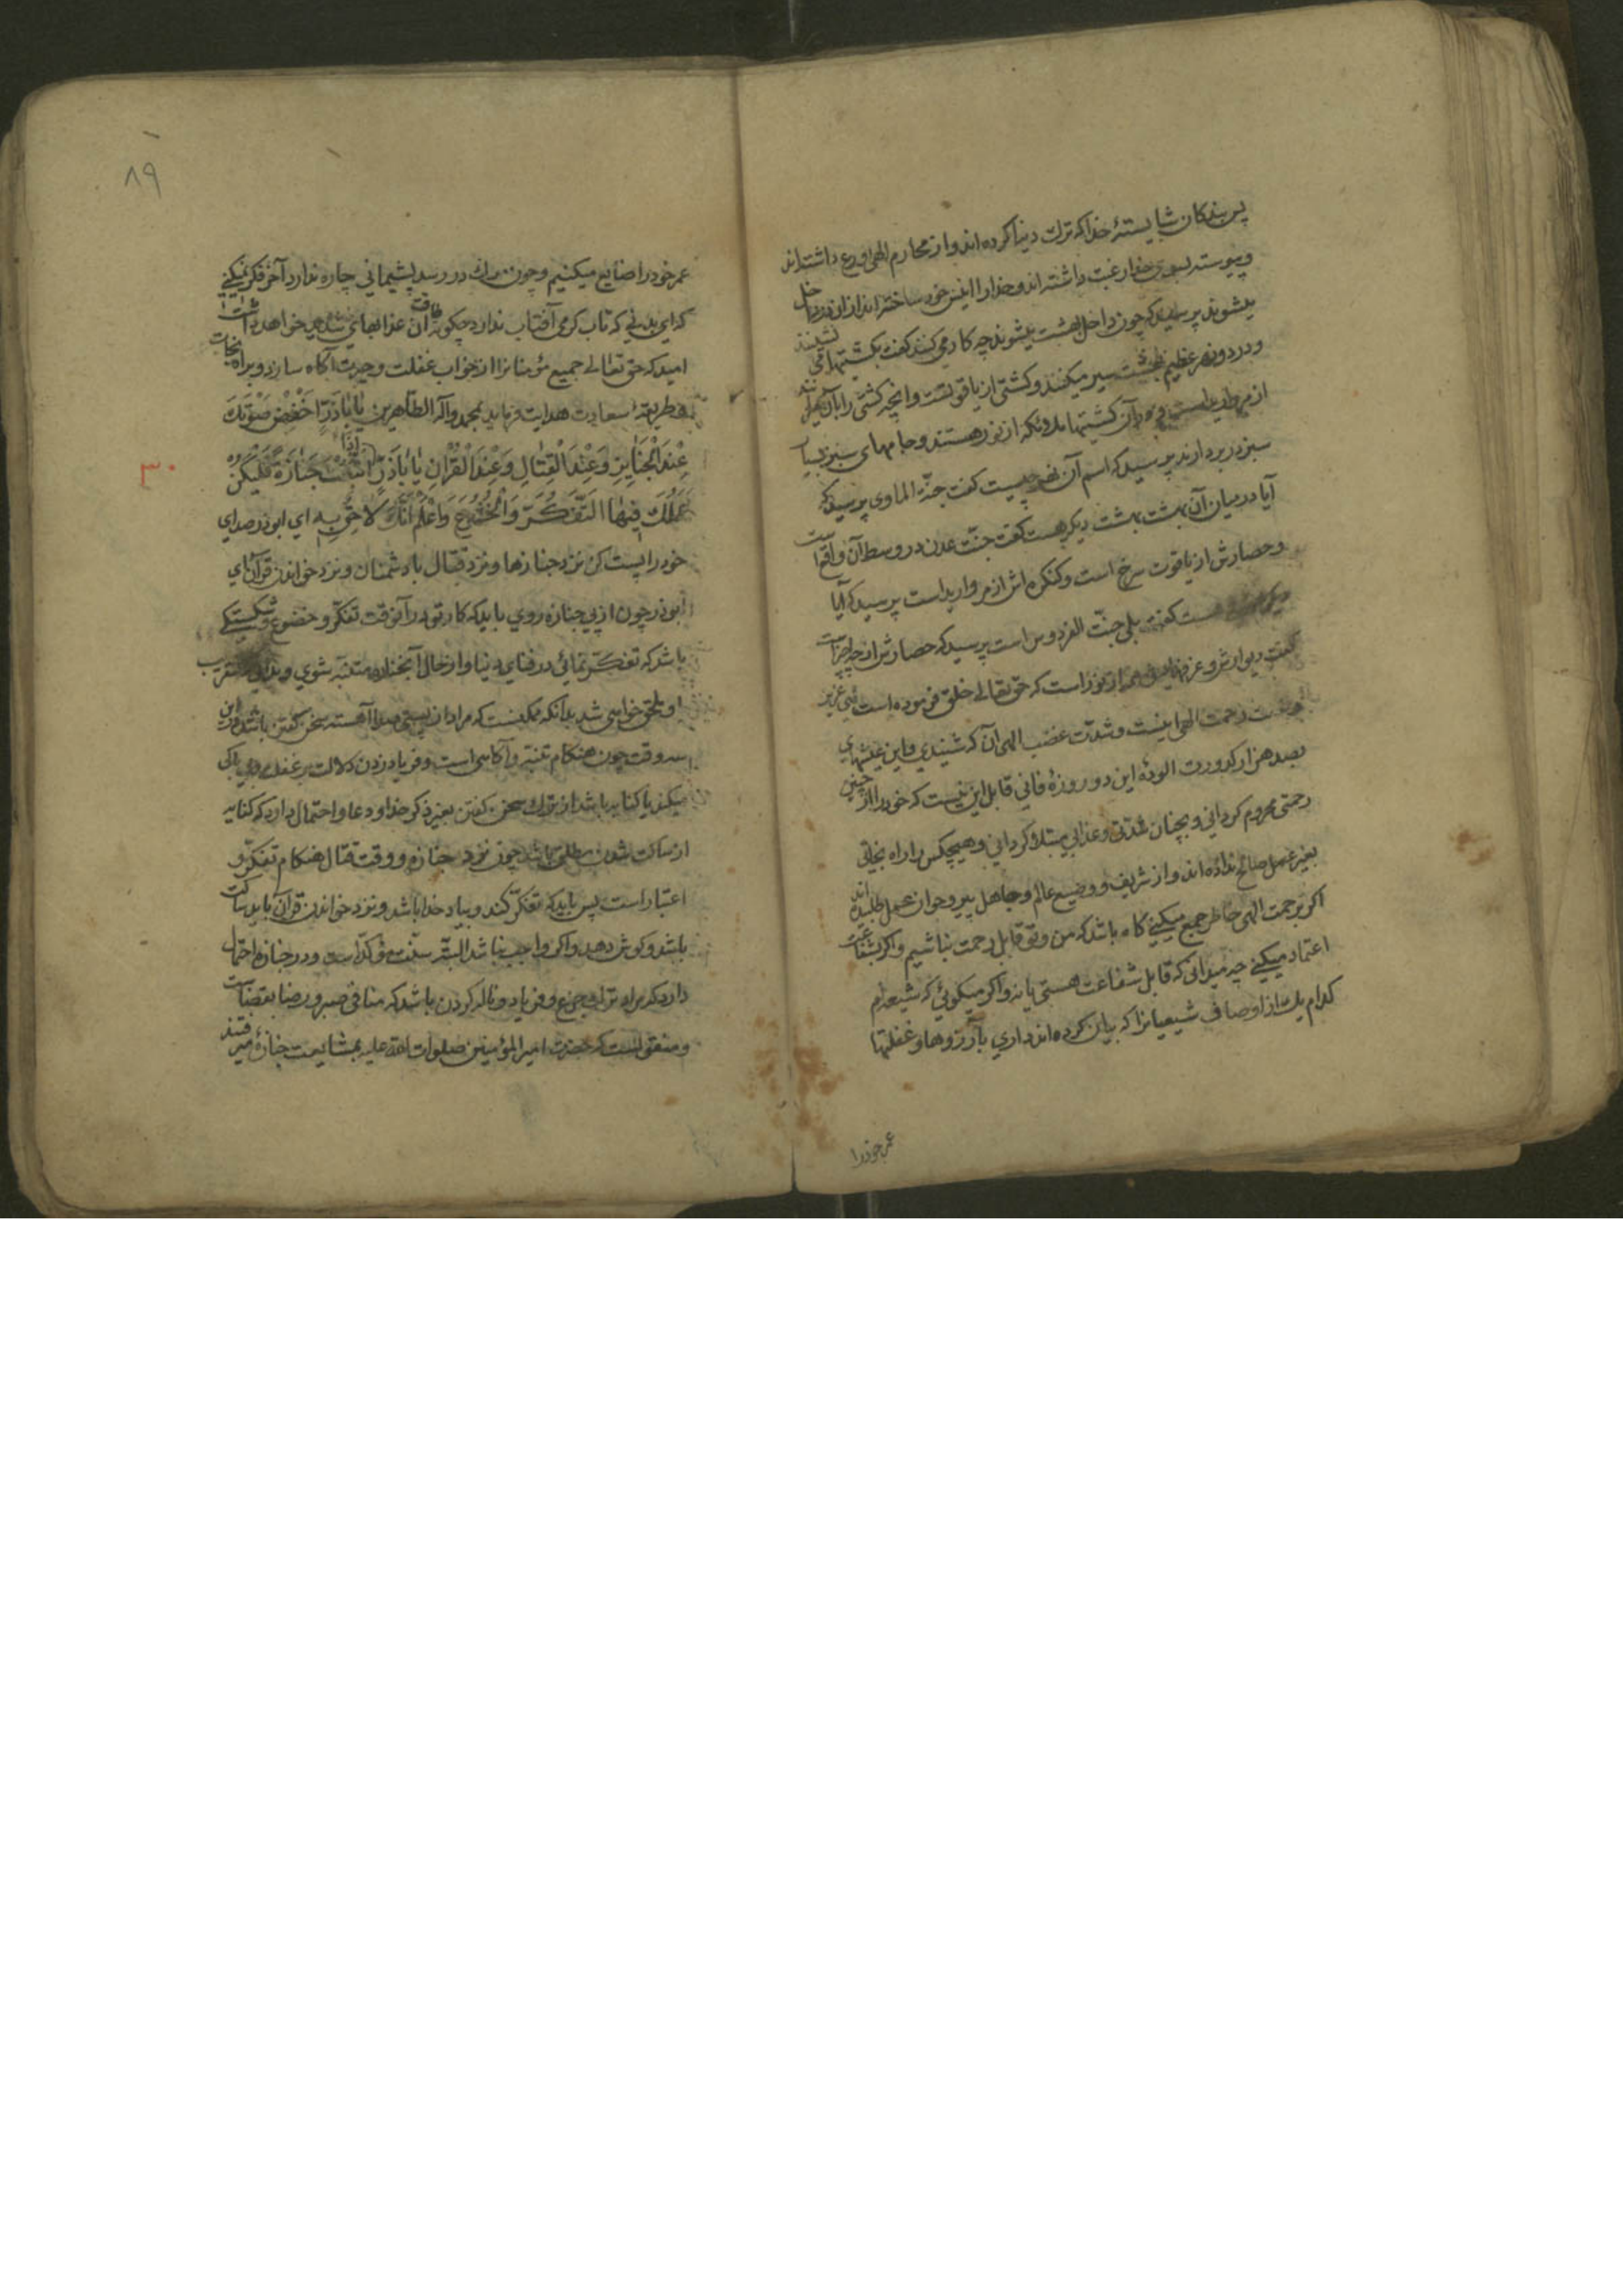 پس بندکان شایستهٔ خدا که ترك دنیا کرده اند و از محارم الهی ورع داشته اند
و پیوسته بسوی خدا رغبت داشته اند و خدا را انیس خود ساخته اند از ان در داخل
میشوند پرسید که چون داخل بهشت میشوند چه کار می کنند کفت بکشتیها می نشینند
و در دو نهر عظیم بهشت سیر میکنند و کشتی از یاقوتست و انچه کشتی را بآن میرانند
از مروارید است و در آن کشتیها ملائکه از نور هستند و جامهای سبز بسیار
سبز در بر دارند پرسید که اسم آن نهر چیست کفت جنّة الماوی پرسید که
آیا در میان آن بهشت بهشت دیکر هست کفت جنّت عدن در وسط آن واقع است
و حصارش از یاقوت سرخ است و کنکره اش از مروارید است پرسید که آیا
دیکر هست کفت بلی جنّت الفردوس است پرسید که حصارش از چه چیز است
کفت دیوارش و غرفهایش همه از نور است که حق تعالی خلق فرموده است
رحمت الهی اینست و شدّت غضب الهی آن که شنیدی و این عیشهای
بصد هزار کدورت الودهٔ این دو روزهٔ فانی قابل این نیست که خود را از چنین
رحمتی محروم کردانی و بچنان شدّتی و عذابی مبتلا کردانی و هیچکس را راه نجاتی
بغیر عمل صالح نداده اند و از شریف و وضیع عالم و جاهل پیر و جوان عمل طلبیده اند
اکر برحمت الهی خاطر جمع میکنی کاه باشد که من و تو قابل رحمت نباشیم و اکر بشفاعت
اعتماد میکنی چه میدانی که قابل شفاعت هستی یا نه و اکر میکوئی که شیعه ام
کدام یك از اوصاف شیعیانرا که بیان کرده اند داری بآرزوها و غفلتها
عمر خود را
٨٩
عمر خود را ضایع میکنیم و چون مرك در رسد پشیمانی چاره ندارد آخر فکر نمیکنی
که ای بدنی که تاب کرمی آفتاب ندارد چکونه طاقت آن عذابهای خواهد داشت
امید که حق تعالی جمیع مؤمنانرا از خواب غفلت و حیرت آکاه سازد و براه نجات
و طریقهٔ سعادت هدایت فرماید بمحمد و آله الطّاهرین یا اباذرّ اخفض صوتك
عِنْدَ الْجَنایِزِ وَ عِنْدَ الْقِتالِ وَ عِنْدَ الْقُرْانِ یا اَباذَرٍّ اِذَا اتَّبَعْتَ جَنازَةً فَلْیَکُنْ
٣٠
عَمَلُكَ فیهَا التَّفَکُّرَ وَ الْخُشُوعَ وَ اعْلَمْ اَنَّكَ لاحِقٌ بِهِ ای ابوذر صدای
خود را پست کن نزد جنازها و نزد قتال با دشمنان و نزد خواندن قرآن ای
ابوذر چون از پی جنازه روی باید که کار تو در آنوقت تفکّر و خضوع و شکستکی
باشد که تفکّر نمائی در فنای دنیا و از حال آنجنازه متنبّه شوی و بدانی که عنقریب
باو ملحق خواهی شد بدانکه ممکنست که مراد از پستی صدا آهسته سخن کفتن باشد در این
سه وقت چون هنکام تنبّه و آکاهی است و فریاد زدن دلالت بر غفلت و بی باکی
میکند یا کنایه باشد از ترك سخن کفتن بغیر ذکر خدا و دعا و احتمال دارد که کنایه
از ساکت شدن مطلق باشد چون نزد جنازه و وقت قتال هنکام تفکّر و
اعتبار است پس باید که تفکّر کند و بیاد خدا باشد و نزد خواندن قرآن باید ساکت
باشد و کوش دهد و اکر واجب نباشد البتّه سنّت مؤکّد است و در جنازه احتمال
دارد که مراد ترك جزع و فریاد و ناله کردن باشد که منافی صبر و رضا بقضاست
و منقولست که حضرت امیر المؤمنین صلوات الله علیه بمشایعت جنازهٔ میرفتند